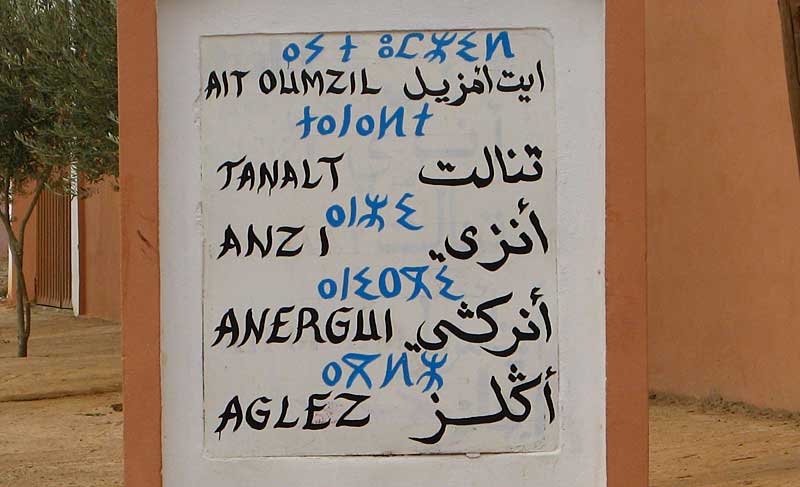 ⴰⵢⵜ ⵓⵎⵣⵉⵍ
AIT OUMZIL ايت أمزيل
ⵜⴰⵏⴰⵍⵜ
TANALT تنالت
ⴰⵏⵣⵉ
ANZI أنزي
ⴰⵏⵉⵔⴳⵉ
ANERGUI أنرݣي
ⴰⴳⵍⵣ
AGLEZ أݣلز